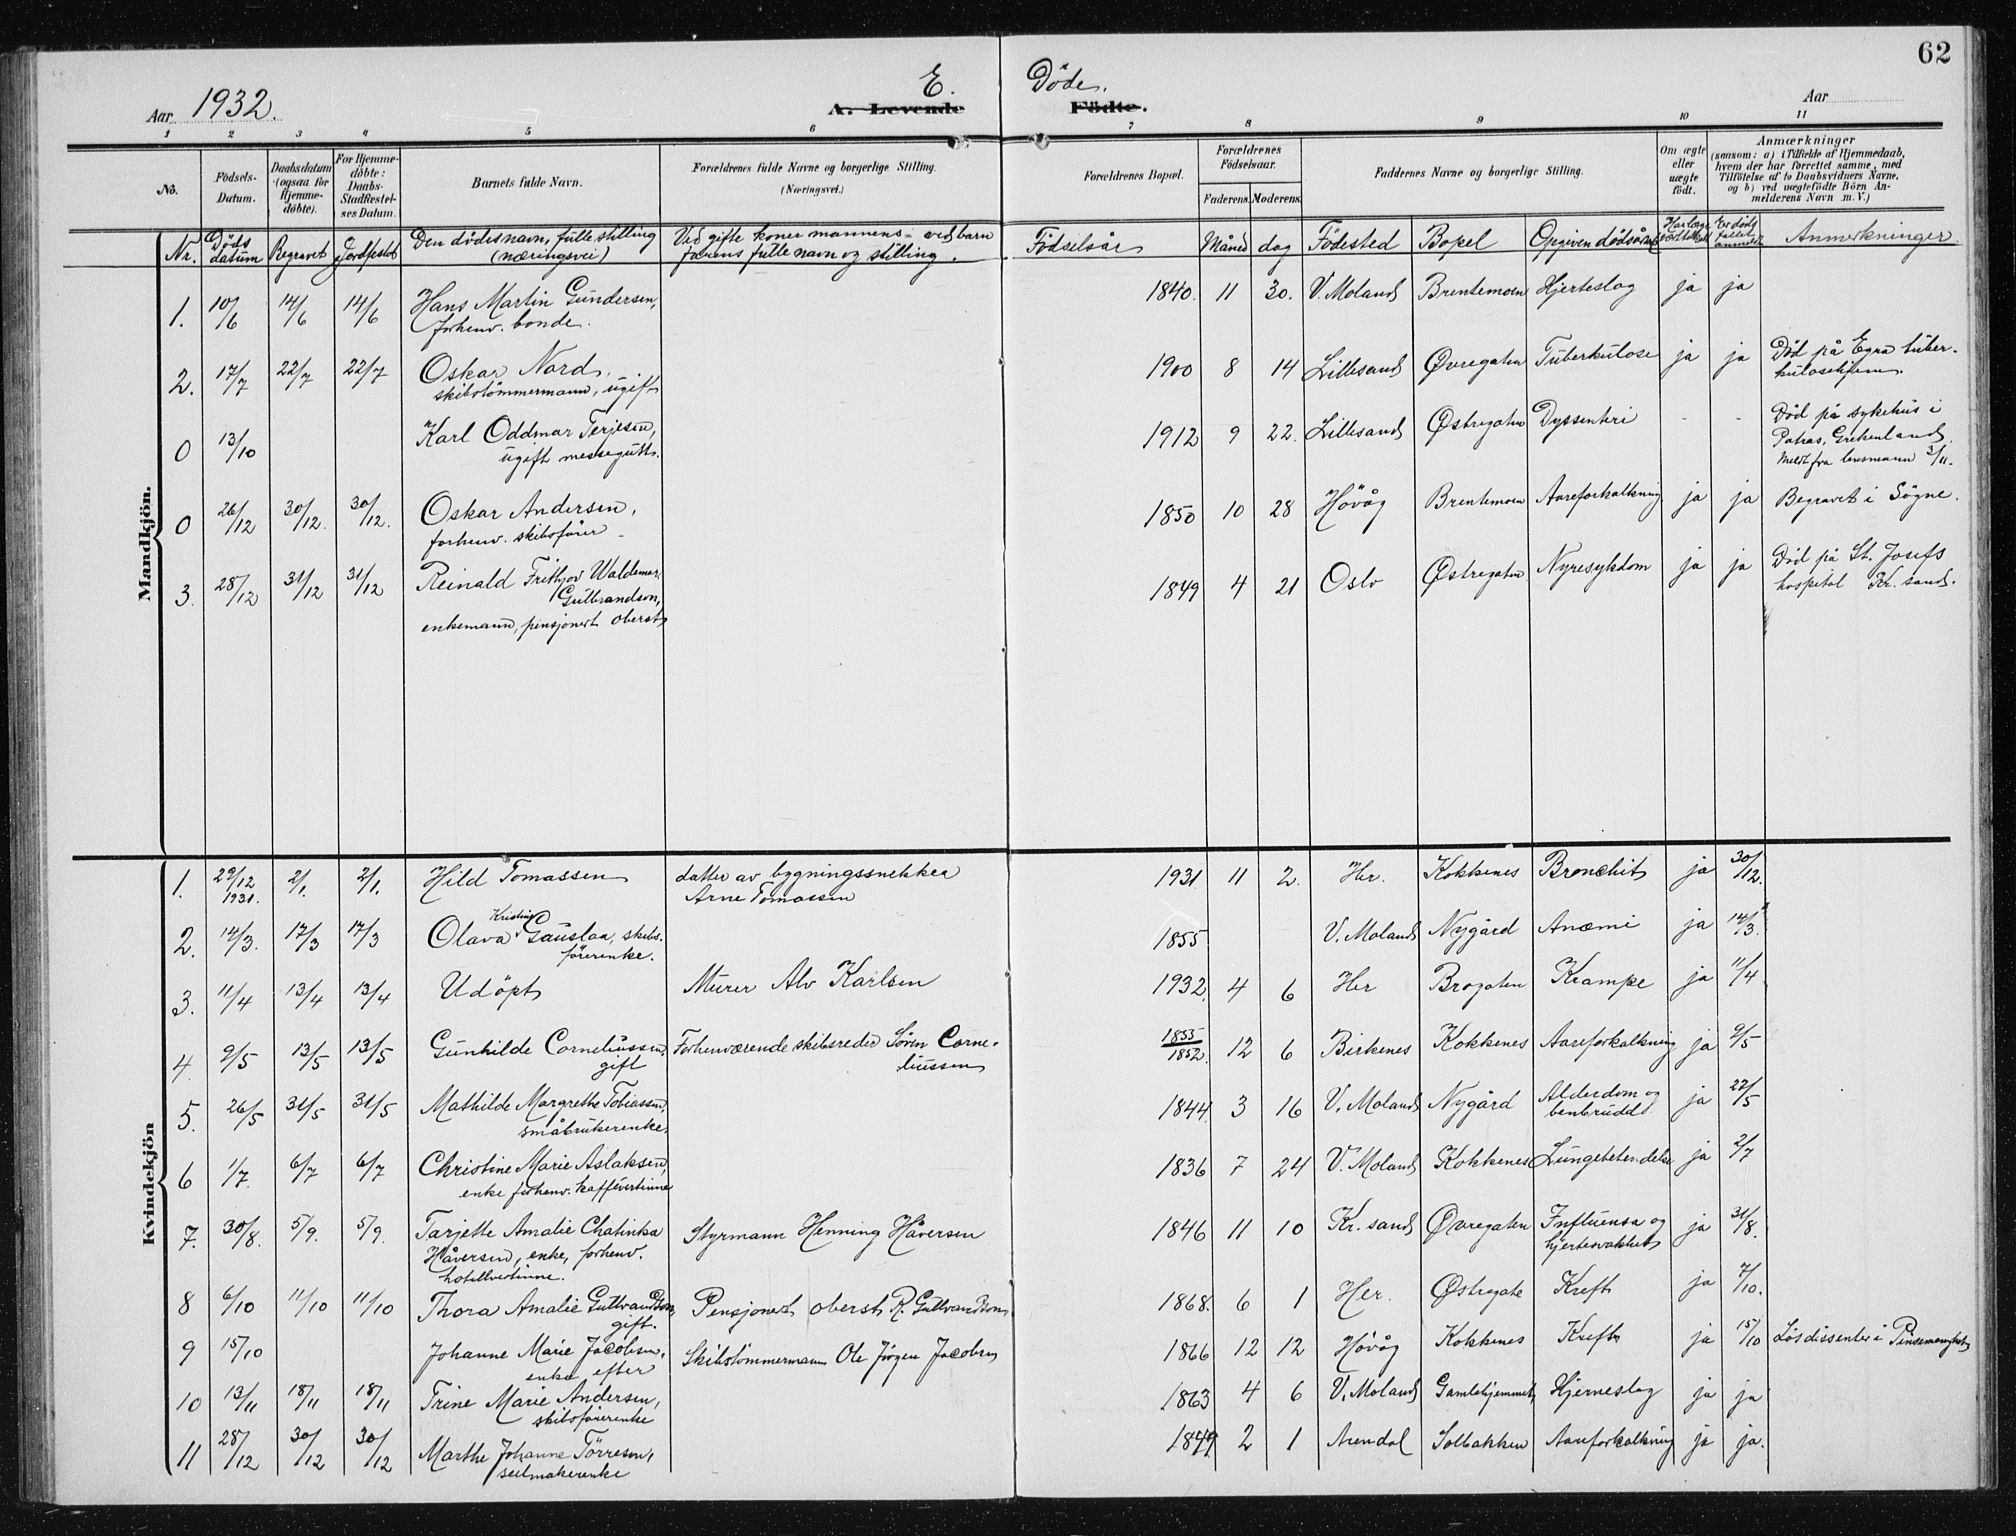 62
Aar 1932.
E. Døde.
A. Levende Fødte.
Aar
1 2 3 4 5 6 7 8 9 10 11
No.
Fødsels-
Datum.
Daabsdatum
(ogsaa for
Hjemme-
døbte).
For Hjemme-
døbte:
Daabs-
Stadfæstel-
ses Datum.
Barnets fulde Navn.
Forældrenes fulde Navne og borgerlige Stilling.
(Næringsvei.)
Forældrenes Bopæl.
Forældrenes
Fødselsaar.
Faderens. Moderens.
Faddernes Navne og borgerlige Stilling.
Om ægte
eller
uægte
født.
Anmærkninger
(saasom: a) i Tilfælde af Hjemmedaab,
hvem der har forrettet samme, med
Tilføielse af to Daabsvidners Navne,
og b) ved uægtefødte Børn An-
melderens Navn m. V.)
Nr. Døds datum Begravet Jordfestet Den dødes navn, fulle stilling (næringsvei) Ved gifte koner mannens – ved barn farens fulle navn og stilling. Fødselsår Måned dag Fødested Bopel Opgiven dødsårsak Anmerkninger
Mandkjön.
1. 10/6 14/6 14/6 Hans Martin Gundersen, 1840. 11 30. V. Moland Brentemoen Hjerteslag ja ja
forhenv. bonde.
2. 17/7 22/7 22/7 Oskar Nord, 1900 8 14 Lillesand Øvregaten Tuberkulose ja ja Død på Egra tuber-
skibstømmermann, ugift kulosehjem.
0 13/10 Karl Oddmar Terjesen, 1912 9 22. Lillesand Østregaten Dyssenteri - - Død på sykehus i
ugift messegutt. Patras, Grekenland.
Meldt fra lensmann 3/11.
0 26/12 30/12. 30/12. Oskar Andersen, 1850 10 28 Høvåg Brentemoen Aareforkalkning ja ja Begravet i Søgne.
forhenv. skibsfører
3. 28/12 31/12 31/12 Reinald Frithjov Waldemar 1849 4 21 Oslo Østregaten Nyresykdom ja ja Død på St. Josefs
Gulbrandson, hospital Kr. sand.
enkemann, pensjonert oberst
Kvindekjön
1. 29/12 1931. 2/1. 2/1. Hild Tomassen datter av bygningssnekker 1931 11 2. Her. Kokkenes Bronchit ja 30/12.
Arne Tomassen
2. 14/3. 17/3 17/3 Olava Kristine Gauslaa, skibs- 1855 V. Moland Nygård Anæmi ja 14/3.
førerenke.
3. 11/4 13/4 13/4 Udøpt Murer Alv Karlsen 1932 4 6 Her Brogaten Krampe ja 11/4
4. 9/5 13/5 13/5 Gunhilde Corneliussen, Forhenværende skibsreder Søren Corne- 1855/1852. 12 6 Birkenes Kokkenes Aareforkalkning ja 9/5
gift liussen
5. 26/5 31/5 31/5 Mathilde Margrethe Tobiassen, 1844. 3 16 V. Moland Nygård Alderdom og ja 27/5
småbrukerenke. benbrudd.
6 1/7. 6/7 6/7 Christine Marie Aslaksen, 1836 7 24 V. Moland Kokkenes Lungebetendelse ja 2/7
enke forhenv. kaffévertinne
7. 30/8. 5/9. 5/9. Tarjette Amalie Chatinka Styrmann Henning Håversen 1846 11 10 Kr. sand Øvregaten Influensa og ja 31/8.
Håversen, enke, forhenv. hjertesvakhet
hotellvertinne.
8 6/10 11/10 11/10 Thora Amalie Gulbrandson, Pensjonert oberst R. Gulbrandson 1868. 6 1 Her. Østregate Kreft ja 7/10.
gift.
9 15/10 Johanne Marie Jacobsen, Skibstømmermann Ole Jørgen Jacobsen 1866 12 12 Høvåg Kokkenes Kreft ja 15/10 Løsdissenter i Pinsemenighet
enke efter
10 13/11 18/11 18/11 Trine Marie Andersen, 1863 4 6 V. Moland Gamlehjemmet Hjerneslag ja ja
skibsførerenke
11 28/12 30/12 30/12 Marthe Johanne Tørresen, 1849 2 1 Arendal Solbakken Aareforkalkning ja ja.
seilmakerenke